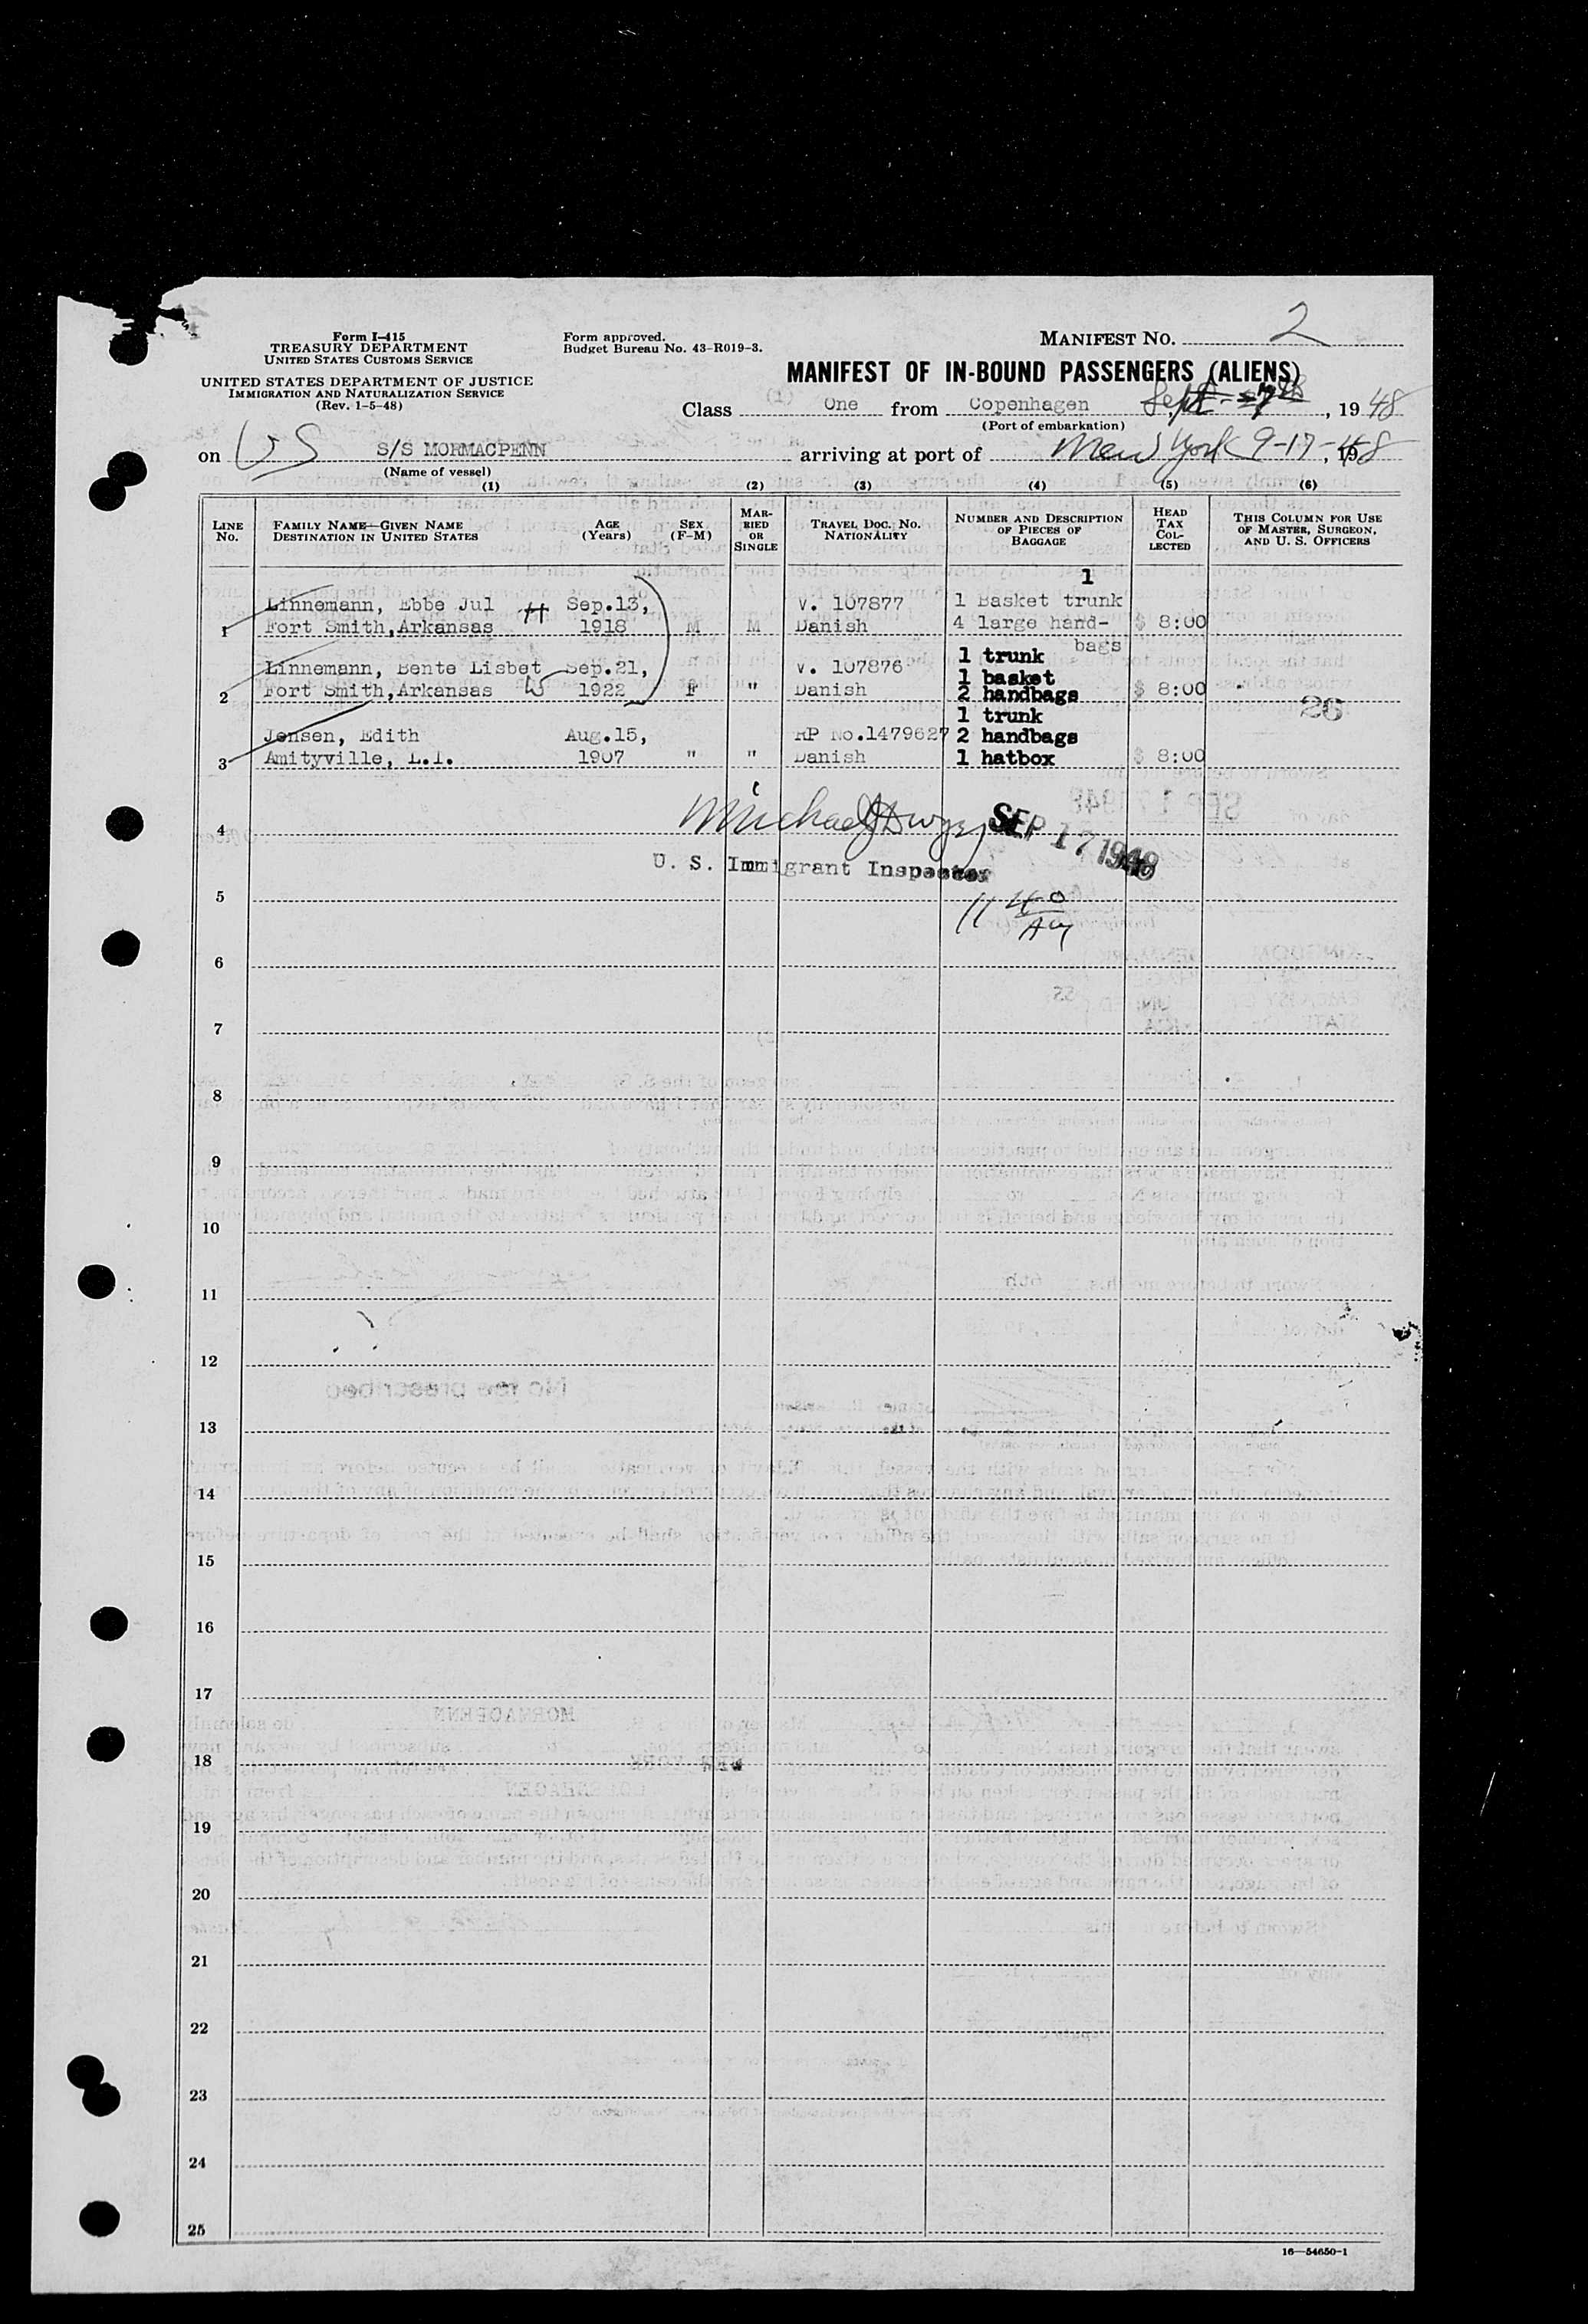 Form I-415
TREASURY DEPARTMENT
UNITED STATES CUSTOMS SERVICE
UNITED STATES DEPARTMENT OF JUSTICE
IMMIGRATION AND NATURALIZATION SERVICE
(Rev. 1-5-48)
Form approved.
Budget Bureau No. 43-R019-3.
MANIFEST NO. 2
MANIFEST OF IN-BOUND PASSENGERS (ALIENS)
Class (1) One from Copenhagen Sept. , 1948
(Port of embarkation)
on US S/S MORMACPENN arriving at port of New York 9-17-, 1948
(Name of vessel)
(1) (2) (3) (4) (5) (6)
LINE No.
FAMILY NAME—GIVEN NAME DESTINATION IN UNITED STATES
AGE (Years)
SEX (F-M)
MARRIED OR SINGLE
TRAVEL DOC. NO. NATIONALITY
NUMBER AND DESCRIPTION OF PIECES OF BAGGAGE
HEAD TAX COLLECTED
THIS COLUMN FOR USE OF MASTER, SURGEON, AND U. S. OFFICERS
1
Linnemann, Ebbe Jul H Sep.13, V. 107877 1 Basket trunk
1 Fort Smith,Arkansas 1918 M M Danish 4 large hand- $ 8:00
bags
1 trunk
Linnemann, Bente Lisbet Sep.21, V. 107876 1 basket
2 Fort Smith,Arkansas W 1922 F " Danish 2 handbags $ 8:00
26
1 trunk
Jensen, Edith Aug.15, RP No.1479627 2 handbags
3 Amityville, L.I. 1907 " " Danish 1 hatbox $ 8:00
Michael J Dwyer SEP 17 1948
4
U. S. Immigrant Inspector
5
11 40 AM
6
7
8
9
10
11
12
13
14
15
16
17
18
19
20
21
22
23
24
25
16—54650-1